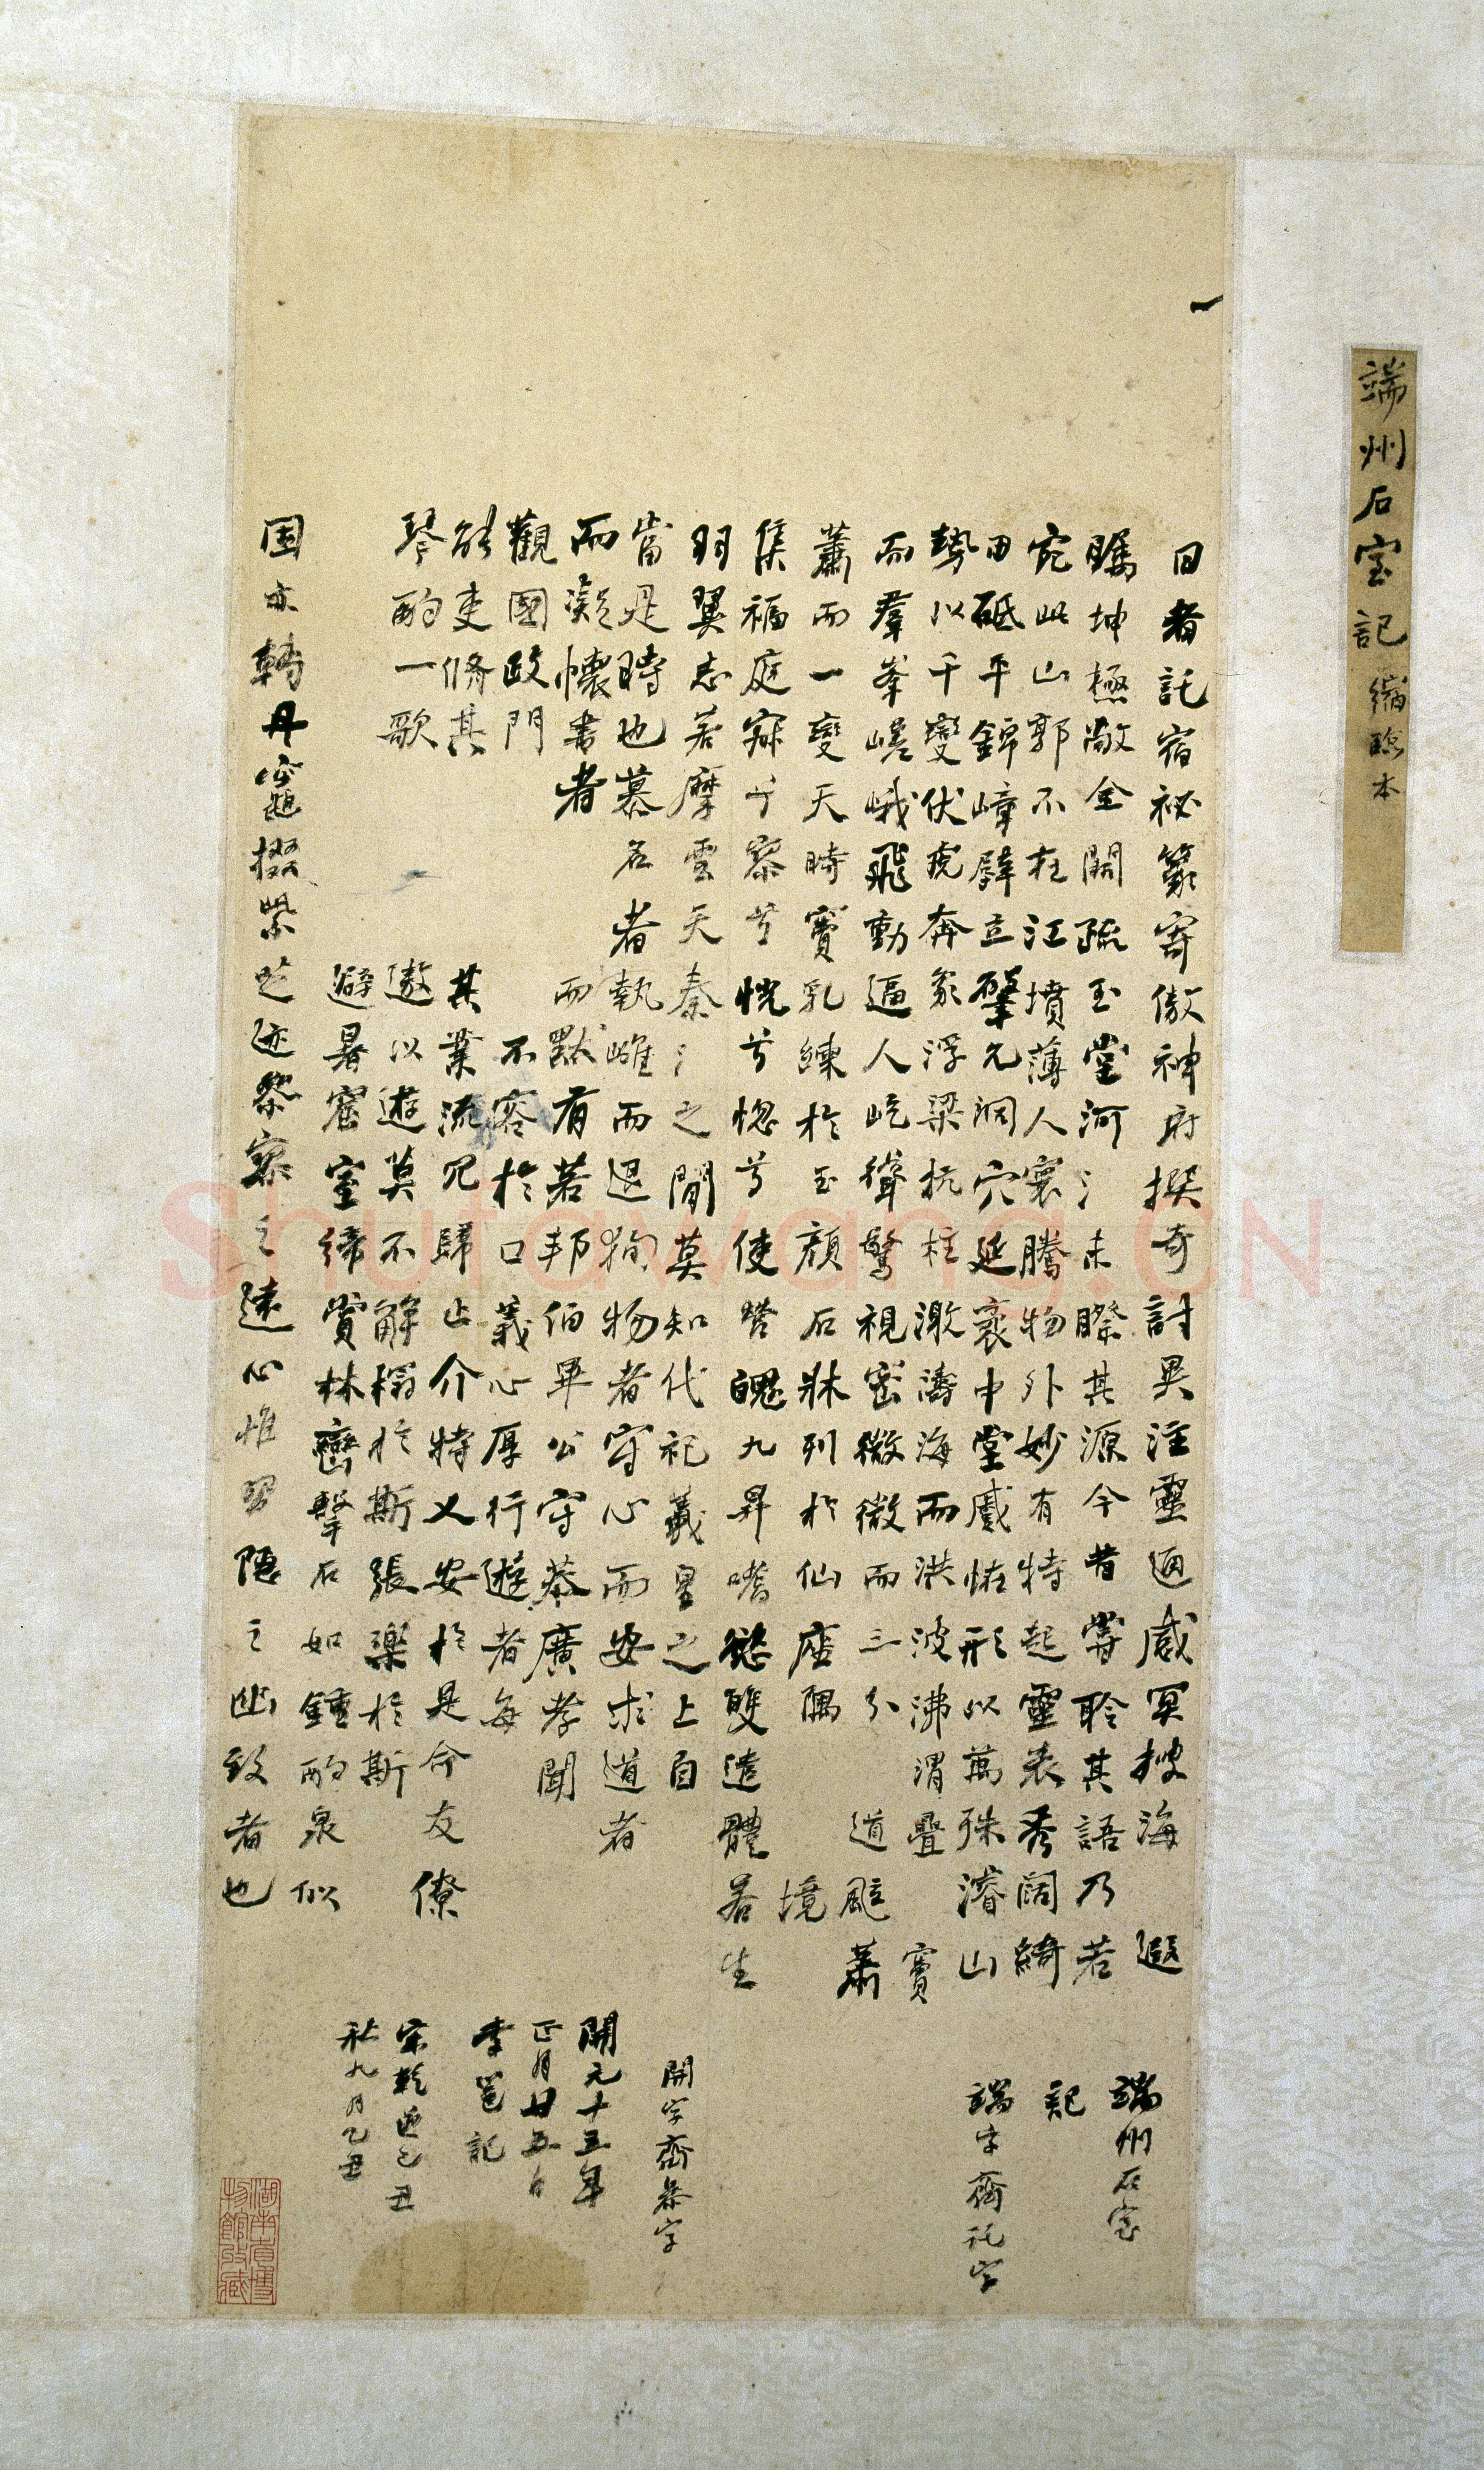 端州石室記 縮臨本
一
日者託宿祕籙寄傲神府撰奇討異注靈通感冥搜海遐
矚坤極敞金闕疏玉堂河氵未睽其源今昔嘗聆其語乃若
宛此山郭不枉江墳薄人寰騰物外妙有特起靈表秀闊綺
田砥平錦嶂壁立肇允洞穴延袤中堂慼恠形以萬殊濬山
勢以千變伏虎奔象浮梁抗柱激濤海而洪波沸渭疊寶
而羣峯嵯峨飛動逼人屹聳驚視密微微而三分道颭蕭
蕭而一變天時竇乳練於玉顏石牀列於仙座隅境
集福庭寂乎寥兮恍兮惚兮使營魄九昇嗜慾雙遣體若生
羽翼志若摩雲天秦氵之閒莫知代祀羲皇之上自
當是時也慕名者執雌而退徇物者守心而安求道者
而凝懷書者而默有若邦伯畢公守恭廣孝聞
觀國政門不容於口義心厚行遊者每
能吏脩其其業流冗歸止介特乂安於是命友僚
琴酌一歌遨以遊莫不解榻於斯張樂於斯
避暑窟室締賞林巒擊石如鍾酌泉似
固亦轥丹竈掇紫芝迹祭寥之遠心惟習隱之幽致者也
端州石室
記
端字齋託字
開字齋恭字
開元十五年
正月廿五日
李邕記
宋乾道己丑
秋九月乙丑
湖南省博
物館收藏
Shufawang.CN